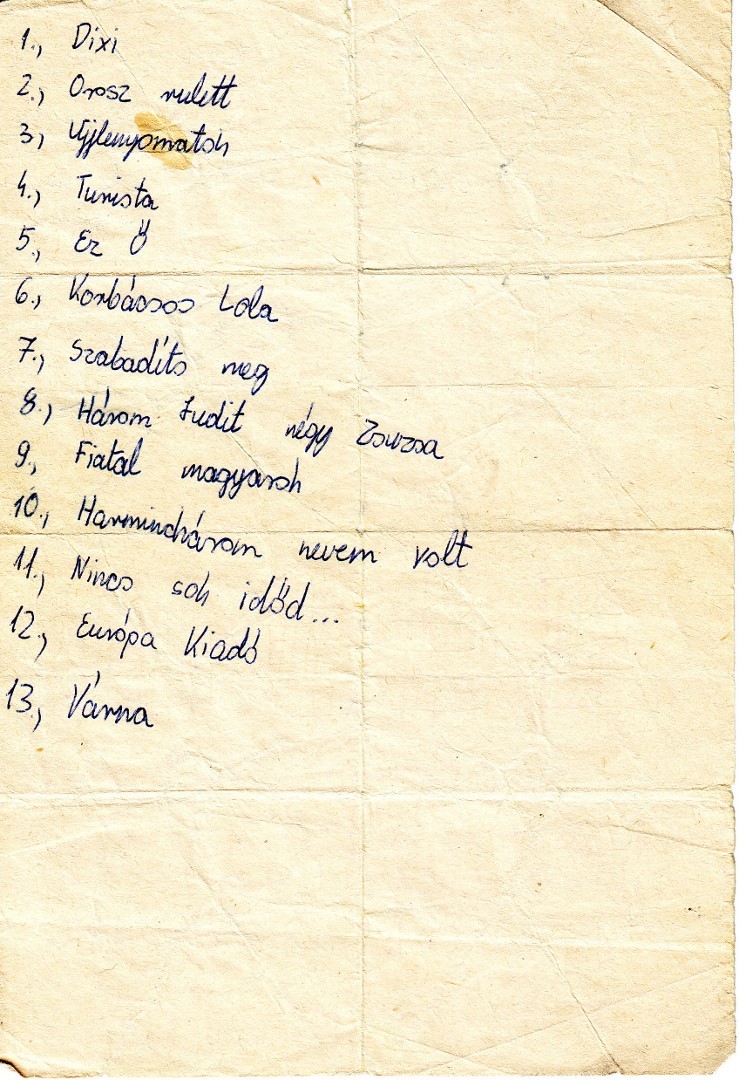 1., Dixi
2., Orosz rulett
3., Ujjlenyomatok
4., Turista
5., Ez Ő
6., Korbácsos Lola
7., Szabadíts meg
8., Három Judit négy Zsuzsa
9., Fiatal magyarok
10., Harminchárom nevem volt
11., Nincs sok időd...
12., Európa Kiadó
13., Várna